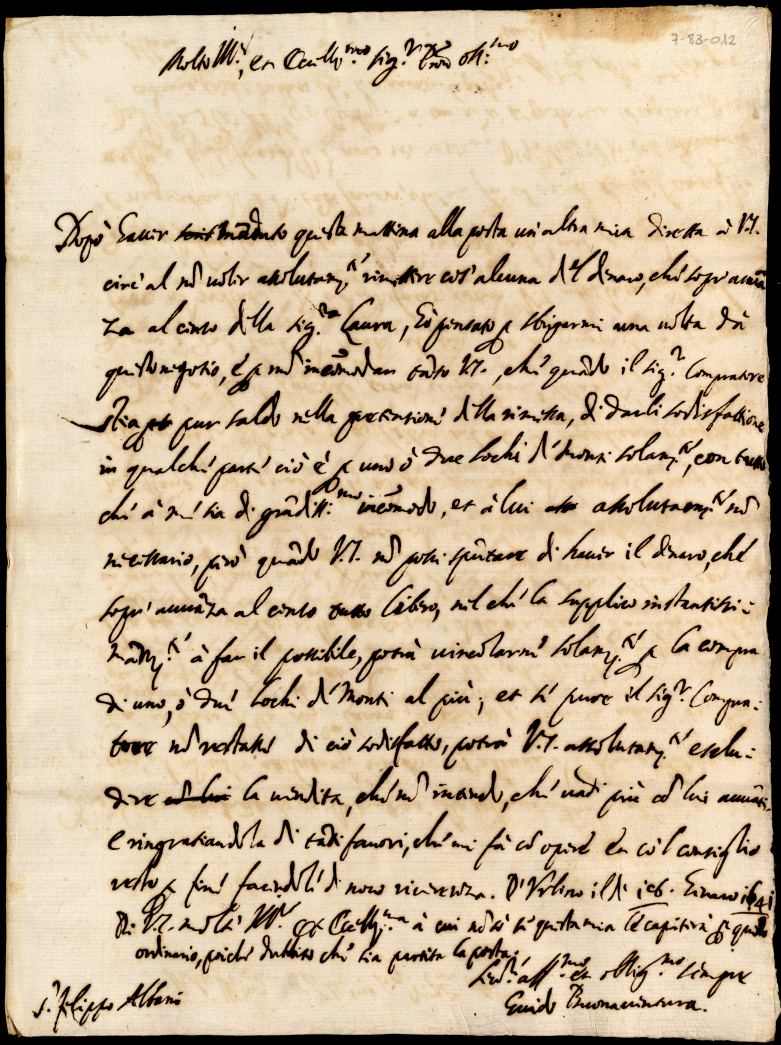 7-83-012
Molto Ill.re, et Eccell.mo Sig.r P̃ron oss.mo
Dopò hauer mãdato questa mattina alla posta un'altra mia diretta à V.S.
circ'al nõ uoler assolutam.te rimettere cos'alcuna del denaro, che sopr'auuã
za al censo della Sig.ra Laura, hò pensato p sbrigarmi una uolta da
questo negotio, e p nõ incõmodar tãto V.S., che quãdo il sig.r Compratore
stia pur saldo nella pretensione della rimessa, di darli sodisfattione
in qualche parte cioè p uno ò due lochi de Monti solam.te, con tutto
che à me sia di grãdiss.mo incõmodo, et à lui assolutam.te nõ
necessario, però quãdo V.S. nõ possi sputare di hauer il denaro, che
sopr'auuãza al censo libero, nel che la supplico instantissi-
mam.te à far il possibile, potrà uincolarmi solam.te p la compra
di uno, ò due lochi de Monti al più; et se pure il sig.r Compra-
tore nõ restasse di ciò sodisfatto, potrà V.S. assolutam.te esclu-
dere la uendita, che nõ intendo, che uadi più cõ lui auuãti,
e ringratiandola di tãti fauori, che mi fà cõ opere et co'l consiglio
resto p fine facendole di nouo riuerenza. D'Urbino il dì 16. Genaro 1641
Di V.S. molto Ill.re et Eccell.ma à cui nõ sò se questa mia le capiterà p questo
ordinario, poiche dubbito che sia partita la posta.
Ser.re aff.mo et obblig.mo sempre
S.r Filippo Albani
Guido Buonauentura.